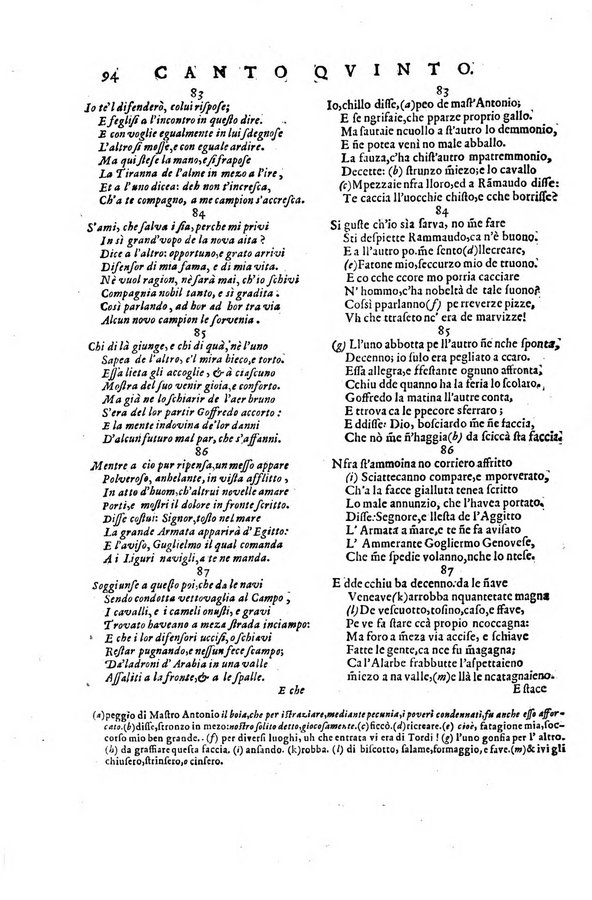 94 CANTO QVINTO.
83
Io te'l difenderò, colui rispose;
E fegliſi a l'incontro in queſto dire.
E con voglie egualmente in lui ſdegnoſe
L'altroſi moſſe, e con eguale ardire.
Ma qui ſteſe la mano, e ſi frapoſe
La Tiranna de l'alme in mezo a l'ire,
Et a l'uno dicea: deh non t'increſca,
Ch'a te compagno, a me campion s'accreſca.
84
S'ami, che ſalva i ſia, perche mi privi
In sì grand'vopo de la nova aita?
Dice a l'altro: opportuno, e grato arrivi
Difenſor di mia fama, e di mia vita.
Nè vuol ragion, nè ſarà mai, ch'io ſchivi
Compagnia nobil tanto, e sì gradita.
Così parlando, ad hor ad hor tra via
Alcun novo campion le ſorvenia.
85
Chi di là giunge, e chi di quà, nè l'uno
Sapea de l'altro, e'l mira bieco, e torto.
Eſſa lieta gli accoglie, & à ciaſcuno
Moſtra del ſuo venir gioia, e conforto.
Ma già ne lo ſchiarir de l'aer bruno
S'era del lor partir Goffredo accorto:
E la mente indovina de'lor danni
D'alcun futuro mal par, che s'affanni.
86
Mentre a cio pur ripenſa, un meſſo appare
Polveroſo, anhelante, in viſta afflitto,
In atto d'huom, ch'altrui novelle amare
Porti, e moſtri il dolore in fronte ſcritto.
Diſſe coſtui: Signor, toſto nel mare
La grande Armata apparirà d'Egitto:
E l'aviſo, Guglielmo il qual comanda
A i Liguri navigli, a te ne manda.
87
Soggiunſe a queſto poi, che da le navi
Sendo condotta vettovaglia al Campo,
I cavalli, e i cameli onuſti, e gravi
Trovato haveano a meza ſtrada inciampo:
E che i lor difenſori ucciſi, o ſchiavi
Reſtar pugnando, e neſſun fece ſcampo;
Da'ladroni d'Arabia in una valle
Aſſaliti a la fronte, & a le ſpalle.
E che
83
Io, chillo diſſe, (a) peo de maſt'Antonio;
E ſe ngrifaie, che pparze proprio gallo.
Ma ſautaie ncuollo a ſt'autro lo demmonio,
E ñe potea venì no male abballo.
La fauza, c'ha chiſt'autro mpatremmonio,
Decette: (b) ſtrunzo m̃iezo; e lo cavallo
(c) Mpezzaie nfra lloro, ed a Rãmaudo diſſe:
Te caccia ll'uocchie chiſto, e cche borriſſe?
84
Si guſte ch'io ſia ſarva, no m̃e fare
Sti deſpiette Rammaudo, ca n'è buono.
E a ll'autro po. m̃e ſento (d) llecreare,
(e) Fatone mio, ſeccurzo mio de truono.
E co cche ccore mo porria cacciare
N'hommo, e cha nobeltà de tale ſuono?
Coſſi pparlanno (f) pe rreverze pizze,
Vh che ttraſeto nc'era de marvizze!
85
(g) Ll'uno abbotta pe ll'autro ñe nche ſponta,
Decenno; io ſulo era pegliato a ccaro.
Eſſa allegra, e ffeſtante ognuno affronta;
Cchiu dde quanno ha la feria lo ſcolaro.
Goffredo la matina ll'autre conta,
E ttrova ca le ppecore sferraro;
E ddiſſe: Dio, boſciardo m̃e ñe faccia,
Che nò m̃e ñ'haggia (b) da ſciccà ſta faccia.
86
Nfra ſt'ammoina no corriero affritto
(i) Sciattecanno compare, e mporverato;
Ch'a la facce gialluta tenea ſcritto
Lo male annunzio, che l'havea portato.
Diſſe: Segnore, e lleſta de l'Aggitto
L'Armata a m̃are, e tte fa avviſato
L'Ammerante Gogliermo Genoveſe,
Che m̃e ſpedie volanno, nche lo nteſe.
87
E dde cchiu ba decenno: da le ñave
Veneave (k) arrobba nquantetate magna
(l) De veſcuotto, toſino, caſo, e ffave,
Pe ve fa ſtare ccà proprio ncoccagna:
Ma foro a m̃eza via acciſe, e ſchiave
Fatte le gente, ca nce fu m̃agagna;
Ca l'Alarbe frabbutte l'aſpettaieno
m̃iezo a na valle, (m) e ll ncatagnaieno.
E ſtace
(a) peggio di Maſtro Antonio il boia, che per iſtraziare, mediante pecunia, i poveri condennati, fu anche eſſo affor-
cato. (b) diſſe, ſtronzo in mezo: noſtro ſolito detto, giocoſamente. (c) ficcò. (d) ricreare. (e) cioè, fatagione mia, ſoc-
corſo mio ben grande.. (f) per diverſi luoghi, uh che entrata vi era di Tordi! (g) l'uno gonfia per l'altro.
(b) da graffiare queſta faccia. (i) anſando. (k) robba. (l) di biſcotto, ſalame, formaggio, e fave. (m) & ivi gli
chiuſero, ſtrinſero, o cinſero.